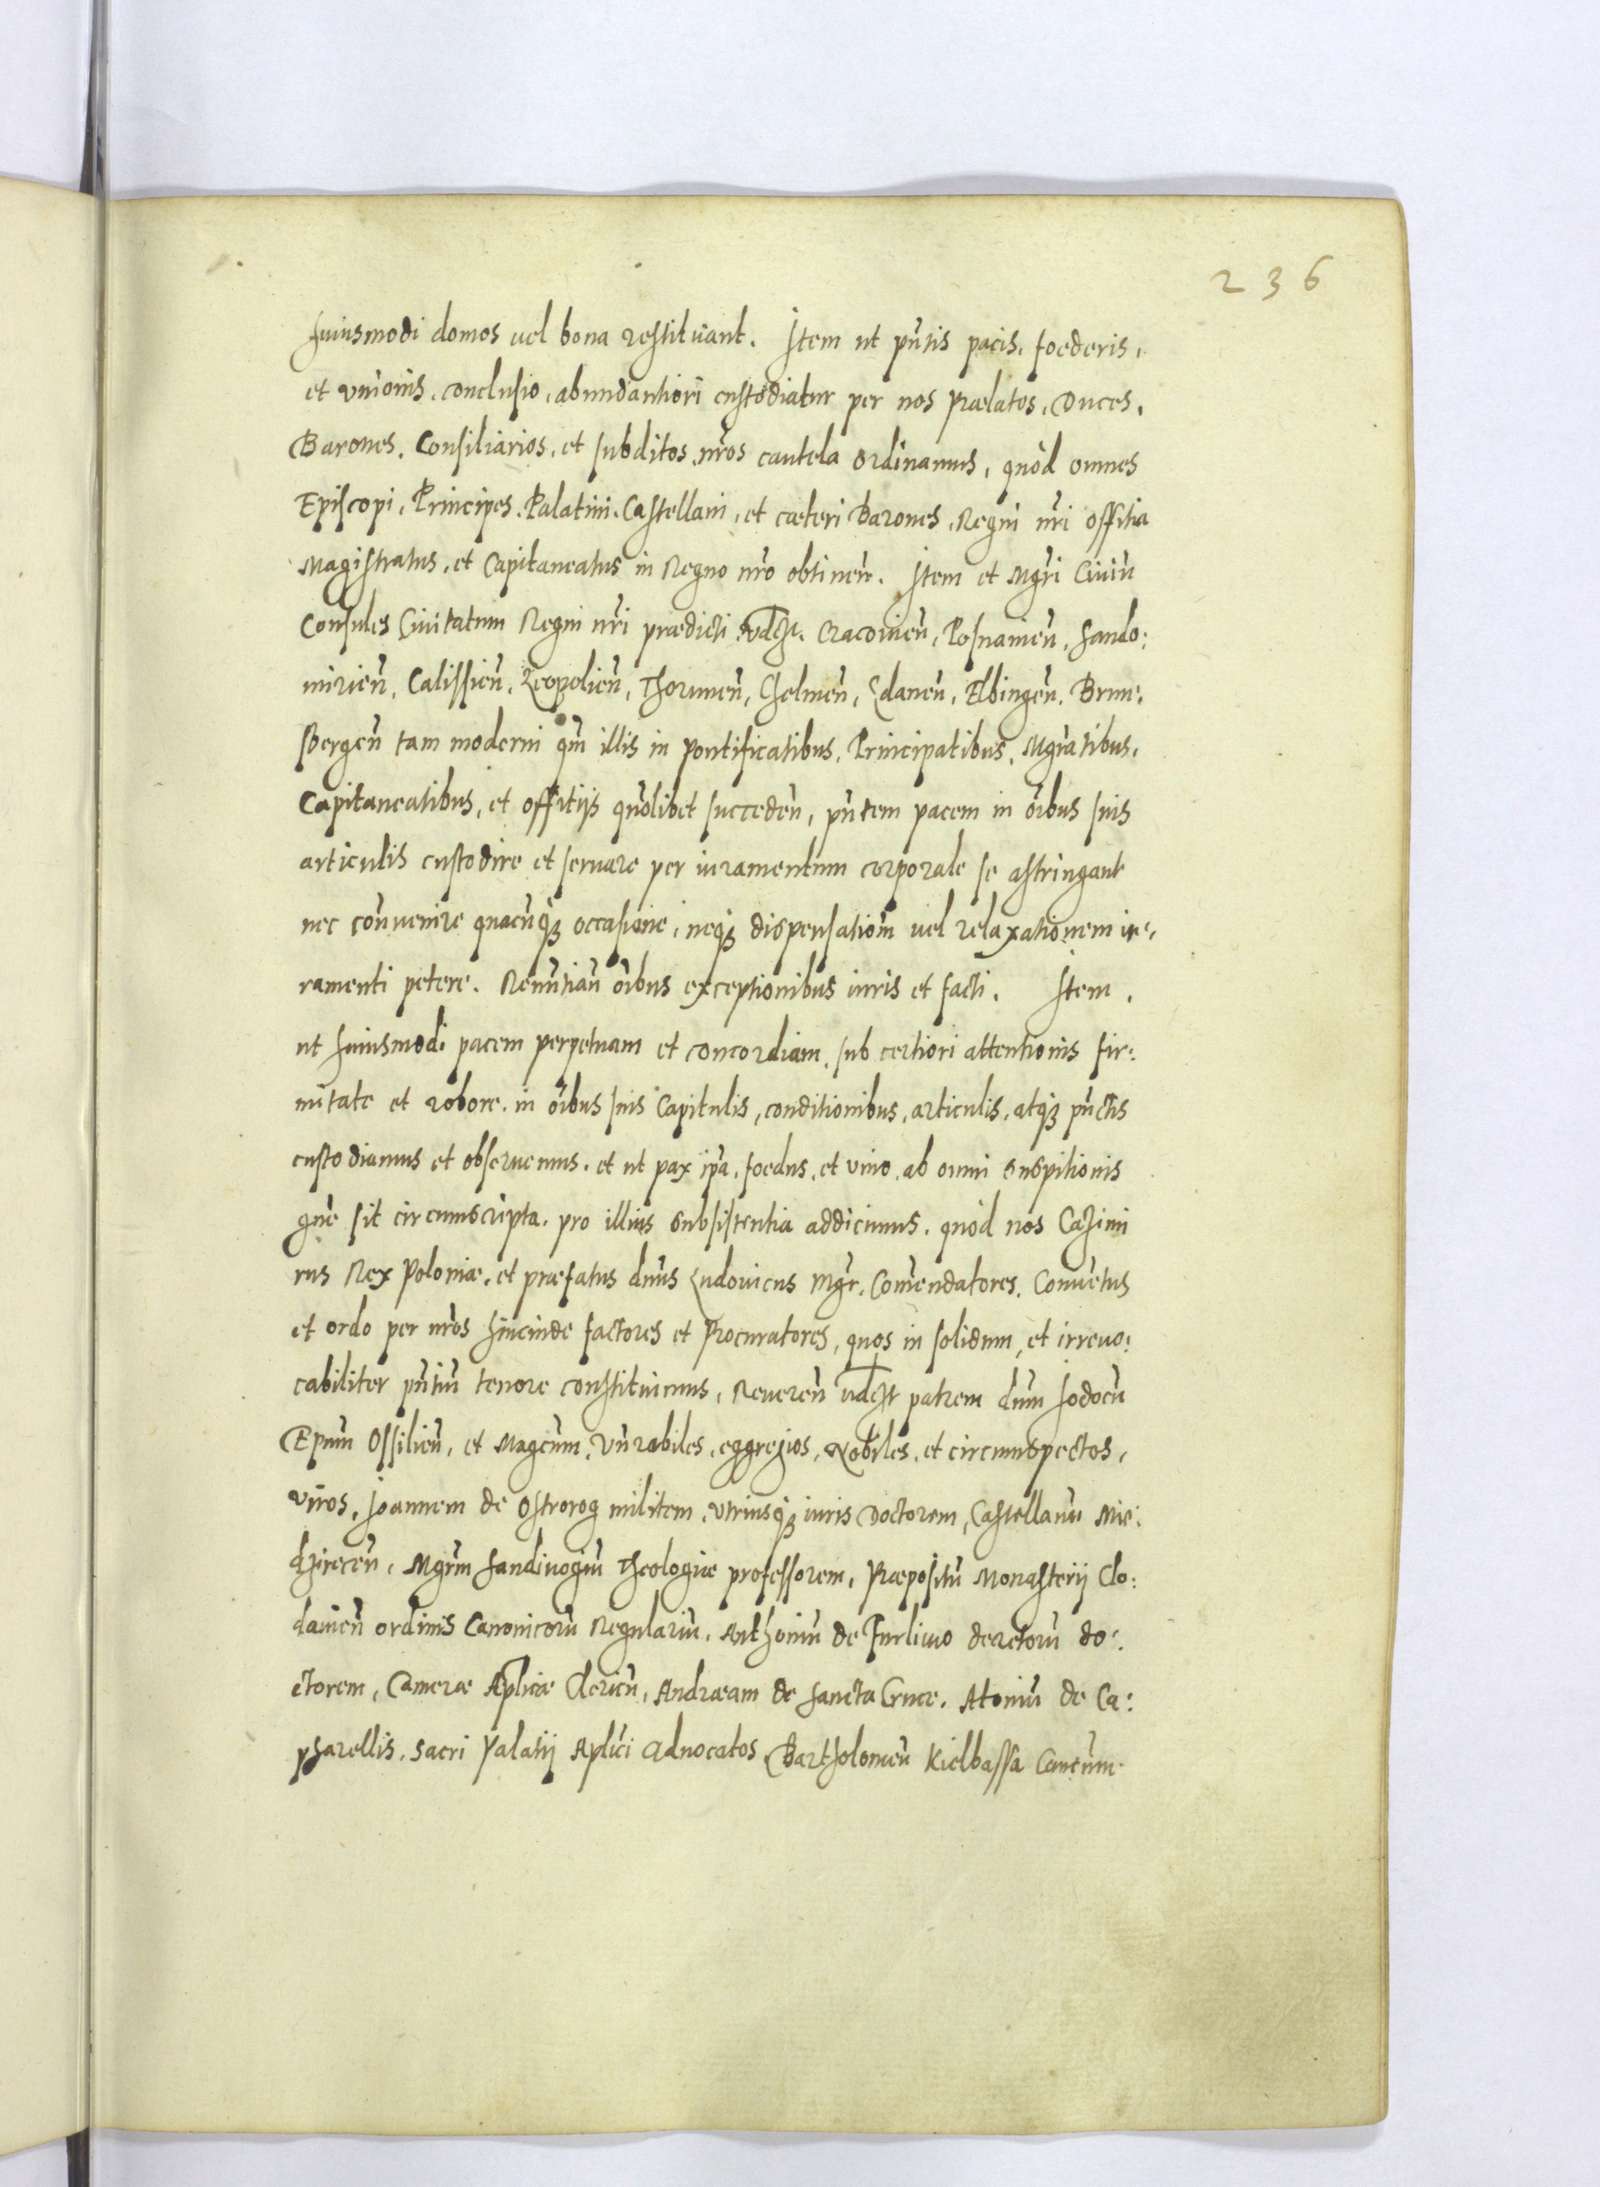 236
huiusmodi domos uel bona restituant. Item ut pñtis pacis, foederis,
et vnionis, conclusio, abundantiori custodiatur per nos Prælatos, Duces,
Barones, Consiliarios, et subditos nr̃os cautela ordinamus, quòd omnes
Episcopi, Principes, Palatini, Castellani, et cæteri Barones, Regni nr̃i offitia
Magistratus, et Capitaneatus in Regno nr̃o obtineñ. Item et Mgr̃i Ciuiũ
Consules Ciuitatum Regni nr̃i prædicti vdt̃. Cracouieñ, Posnanieñ, Sando:
mirieñ, Calissieñ, Leopolieñ, Thoruneñ, Chelmeñ, Gdaneñ, Elbingeñ, Brun:
sbergeñ tam moderni qm̃ illis in Pontificatibus, Principatibus, Mgr̃atibus,
Capitaneatibus, et offitijs quõlibet succedeñ, pñtem pacem in oĩbus suis
articulis custodire et seruare per iuramentum corporale se astringant
nec conuenire quacũq3 occasione, neq3 dispensatiom̃ uel relaxationem iu:
ramenti petere. Renũtiañ oĩbus exceptionibus iuris et facti. Item.
ut huiusmodi pacem perpetuam et concordiam, sub certiori attentionis fir:
mitate et robore in oĩbus suis Capitulis, conditionibus, articulis, atq3 pũctis
custodiamus et obseruemus, et ut pax ip̃a, foedus, et vnio, ab omni suspitionis
gñe sit circumscripta, pro illius subsistentia addicimus, quòd nos Cazimi
rus Rex Poloniæ, et præfatus dñus Ludouicus Mgr̃, Com̃endatores, Conuẽtus
et ordo per nr̃os hincinde factores et Procuratores, quos in solidum, et irreuo:
cabiliter pñtiũ tenore constituimus, Reuereñ vdt̃ patrem dñm Jodocũ
Ep̃um Ossilieñ, et Magcum, Vñrabiles, eggregios, Nobiles, et circumspectos,
viros, Joannem de Ostrorog militem, vtriusq3 iuris Doctorem, Castellanũ Mie:
dzireceñ, Mgr̃m Sandiuogiũ Theologiæ professorem, Præpositũ Monasterij Clo:
dauieñ ordinis Canonicorũ Regulariũ, Anthoniũ de Furliuio decretorũ do:
ctorem, Cameræ Ap̃licæ Clericũ, Andræam de Sancta Cruce, Atoniũ de Ca:
pharellis, Sacri Palatij Ap̃lici Aduocatos, Bartholomeũ Kielbassa Cancum